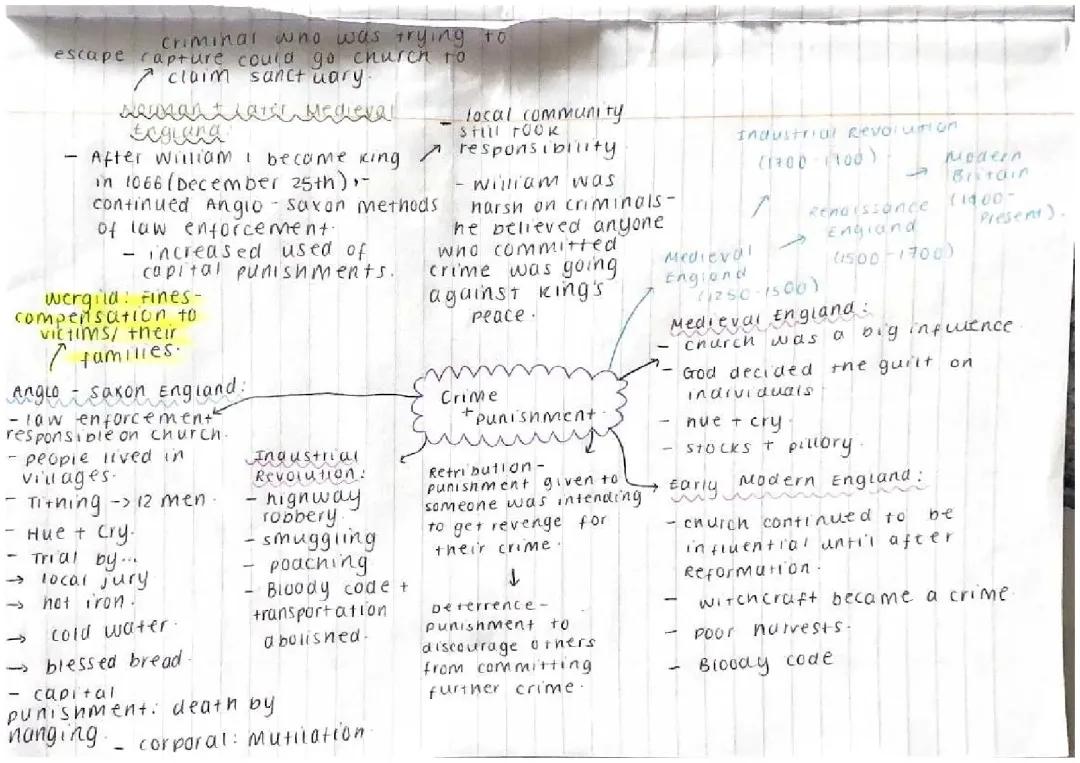 criminal who was trying to
escape capture could go church to
claim sanctuary.
Norman + Later Medieval
England:
- After William I became king
in 1066 (December 25th) :-
continued Anglo-Saxon methods
of law enforcement.
- increased used of
capital punishments.
- local community
still took
responsibility.
- William was
harsh on criminals-
he believed anyone
who committed
crime was going
against king's
peace.
Industrial Revolution
(1700-1900)
Modern
Britain
(1900-
Present).
Renaissance
England
(1500-1700)
Medieval
England
(1250-1500)
Wergild: Fines-
compensation to
victims/ their
families.
Anglo-Saxon England:
- law enforcement
responsible on church.
- people lived in
villages.
- Tithing -> 12 men.
- Hue + Cry.
- Trial by...
→ local jury
→ hot iron.
→ cold water.
→ blessed bread.
- capital
punishment: death by
hanging.
- corporal: Mutilation.
Industrial
Revolution:
- highway
robbery.
- smuggling
- poaching
- Bloody code +
transportation
abolished.
Crime
+ punishment.
Retribution-
punishment given to
someone was intending
to get revenge for
their crime.
↓
Deterrence-
punishment to
discourage others
from committing
further crime.
Medieval England:
- church was a big influence.
- God decided the guilt on
individuals
- hue + cry.
- stocks + pillory.
Early Modern England:
- church continued to be
influential until after
Reformation.
- witchcraft became a crime.
- poor harvests.
- Bloody code